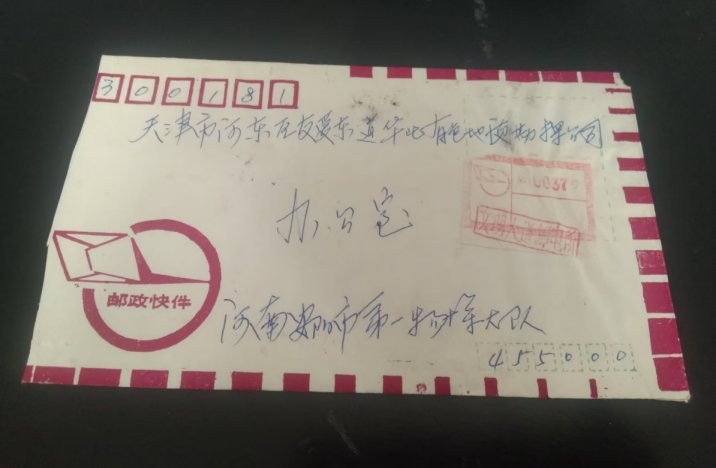 300181
天津市河东区友爱东道华北有色地质勘探公司
0037
办公室
邮政快件
河南安阳市第一物探大队
455000